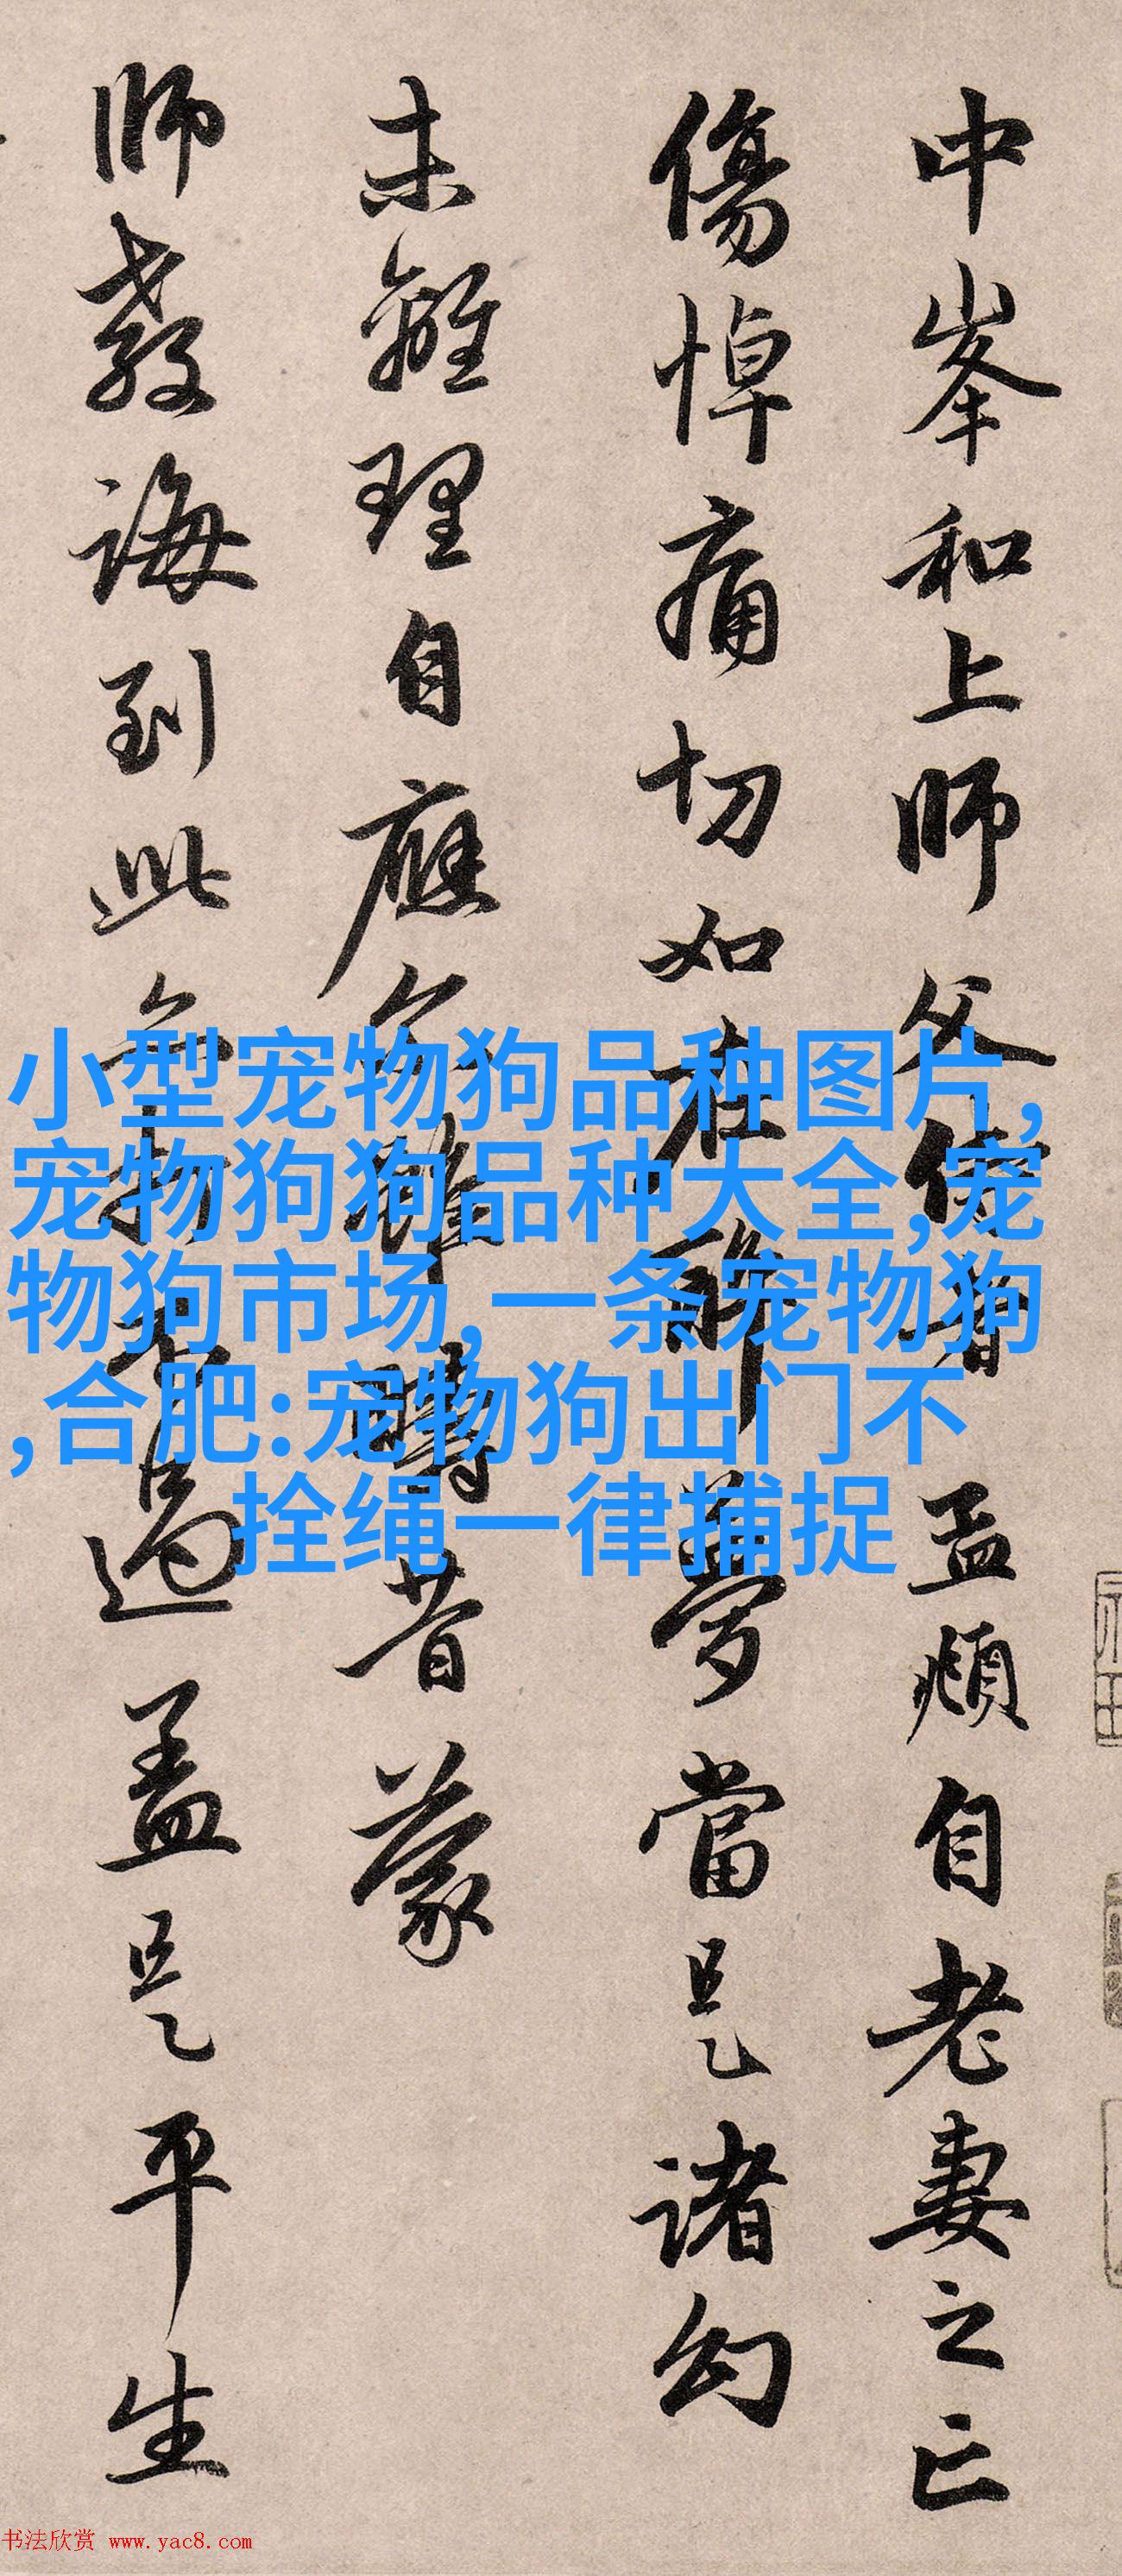 中峯和上師父侍者 孟頫自老妻之亡
傷悼痛切如在醉夢當是諸幻
未離理自應尒雖畴昔蒙
師教誨到此亦打不過盖是平生
小型宠物狗品种图片,
宠物狗狗品种大全,宠
物狗市场, 一条宠物狗
,合肥:宠物狗出门不
拴绳一律捕捉
书法欣赏 www.yac8.com